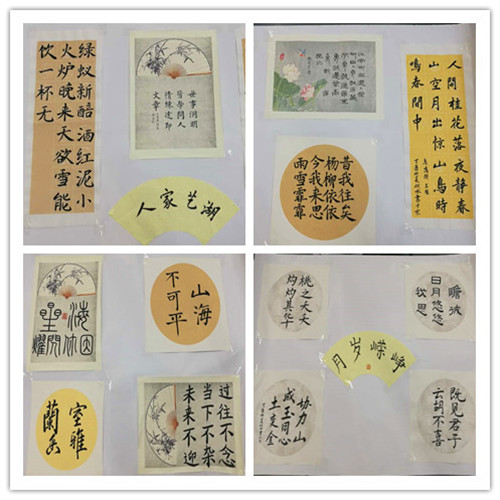 绿蚁新醅酒红泥小
火炉晚来天欲雪能
饮一杯无
世事洞明
皆学问人
情练达即
文章
湖艺家人
昔我往矣
杨柳依依
今我来思
雨雪霏霏
人闲桂花落夜静春
山空月出惊山鸟时
鸣春涧中
山海
不可平
室雅
蘭香
过往不念
当下不杂
未来不迎
桃之夭夭
灼灼其华
瞻彼
日月悠悠
我思
峥嵘岁月
协力山
成玉同心
土变金
既见君子
云胡不喜